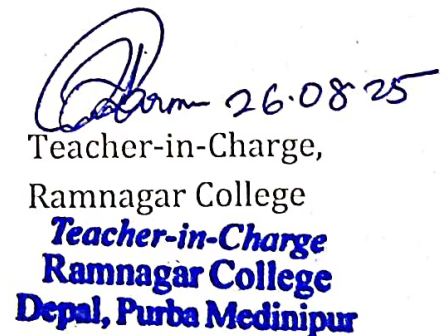 26.08 25
Teacher-in-Charge,
Ramnagar College
Teacher-in-Charge
Ramnagar College
Depal, Purba Medinipur